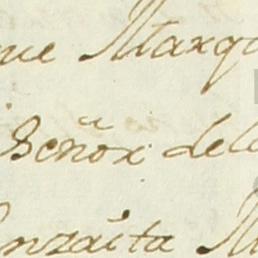 que Marq
Señor de la
nzaita M